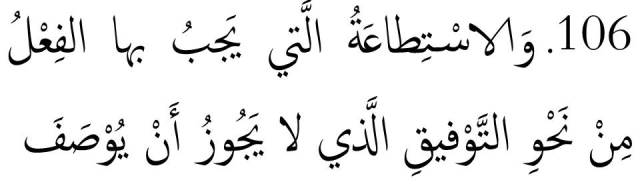 106. وَالاسْتِطاعَةُ الَّتي يَجِبُ بها الفِعْلُ
مِنْ نَحْوِ التَّوْفيقِ الَّذي لا يَجُوزُ أَنْ يُوْصَفَ